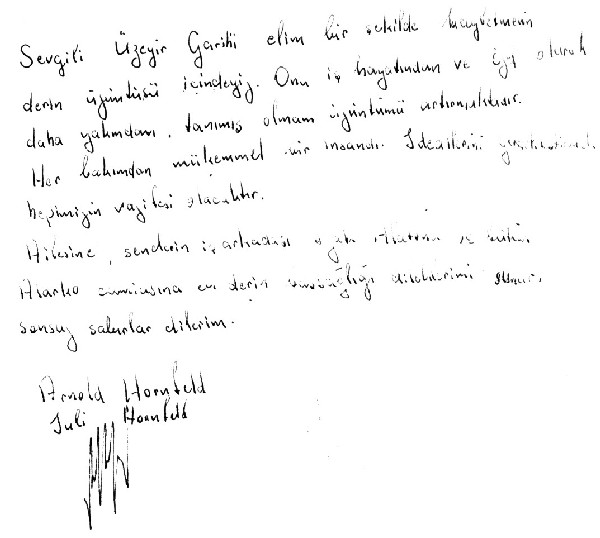 Sevgili Üzeyir Garih'i elim bir şekilde kaybetmenin
derin üzüntüsü içindeyiz. Onu iş hayatından ve olarak
daha yakından tanımış olmam üzüntümü artırmaktadır.
Her bakımdan mükemmel bir insandı. İdeallerini
hepimizin vazifesi olacaktır.
Ailesine, senelerin iş arkadaşı
Alarko camiasına en derin başsağlığı dileklerimi
sonsuz sabırlar dilerim.
Arnold Hornfeld
Juli Hornfeld